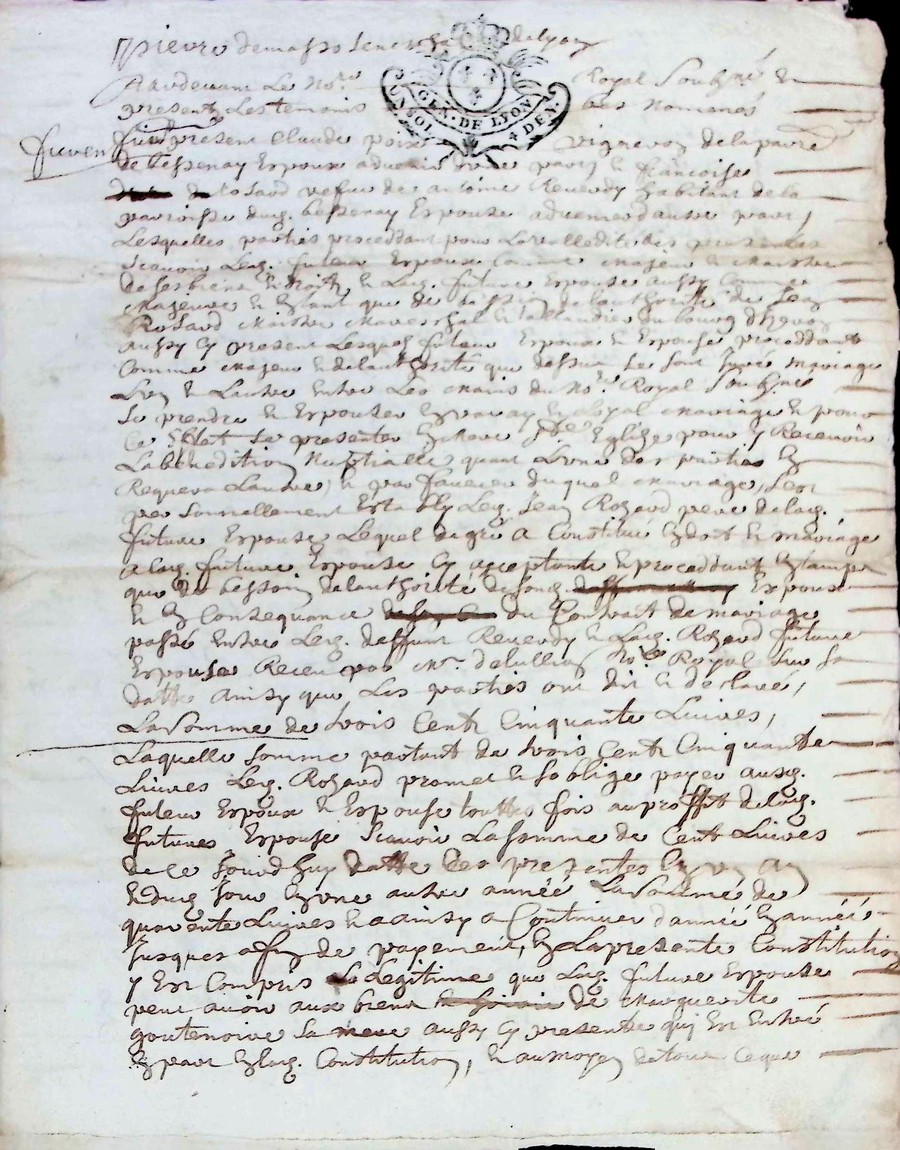 pierre demasso senechal de lyon
GEN. DE LYON
UN SOL 4 DEN.
Pardevant Le No.re Royal Soubsne &
presents Les temoins bas nommés
furent
furent present Claude vigneron de la parre
de bessenay Espoux advenir d'une part, & francoise
Rosard vefve de antoine Reverdy habitant de la
parroisse dud. bessenay Espouse advenir d'autre part,
Lesquelles parties proceddant pour La validité des presentes
scavoir Led. futeur Espoux comme majeur & maistre
de ses biens & droits, & Lad. future Espouse aussy comme
majeure & En tant que de bessoin de lauthorité de Jean
Rosard maistre mareschal & taillandier du bourg
aussy Cy present Lesquels futeur Espoux & Espouse proceddant
Comme majeur & de lauthorité que dessus se sont juré mariage
L'un & Lautre Entre Les mains du No.re Royal Soubsne
de prendre & Espouser En vray & Loyal mariage & pour
Ce Effet se presenter En nre S.te Eglise pour y Recevoir
La benedition Nuptialle quant L'une des parties En
Requera Lautre, & par faveur duquel mariage, sest
personnellement Estably Led. Jean Rozard pere de lad.
future Espouse Lequel de gré a Constitué En dot & mariage
a lad. future Espouse Cy acceptante & proceddant En tampt
que de bessoin de lauthorité de son d. Espoux
& En Consequance du Contrait de mariage
passé Entre Led. deffunt Reverdy & Lad. Rozard future
Espouse Receu par m.e No.re Royal sur sa
datte ainsy que Les parties ont dit & desclaré,
La somme de trois Cent Cinquante Livres,
Laquelle somme partant de trois Cent Cinquante
Livres Led. Rozard promet & soblige payer ausd.
futeur Espoux & Espouse touttes fois au proffit de lad.
future Espouse scavoir La somme de Cent Livres
de Ce jourdhuy datte des presentes En un an
& dud. jour En une autre année La somme de
quarente Livres & a ainsy a Continuer d'année En année
jusques a fin de payement, En La presente Constitution
y Est Compris La Legitime que Lad. future Espouse
peut avoir aux biens de marguerite
goutenoire sa mere aussy Cy presente qui Est Entré
En part En lad. Constitution, & au moyen de tout ce que